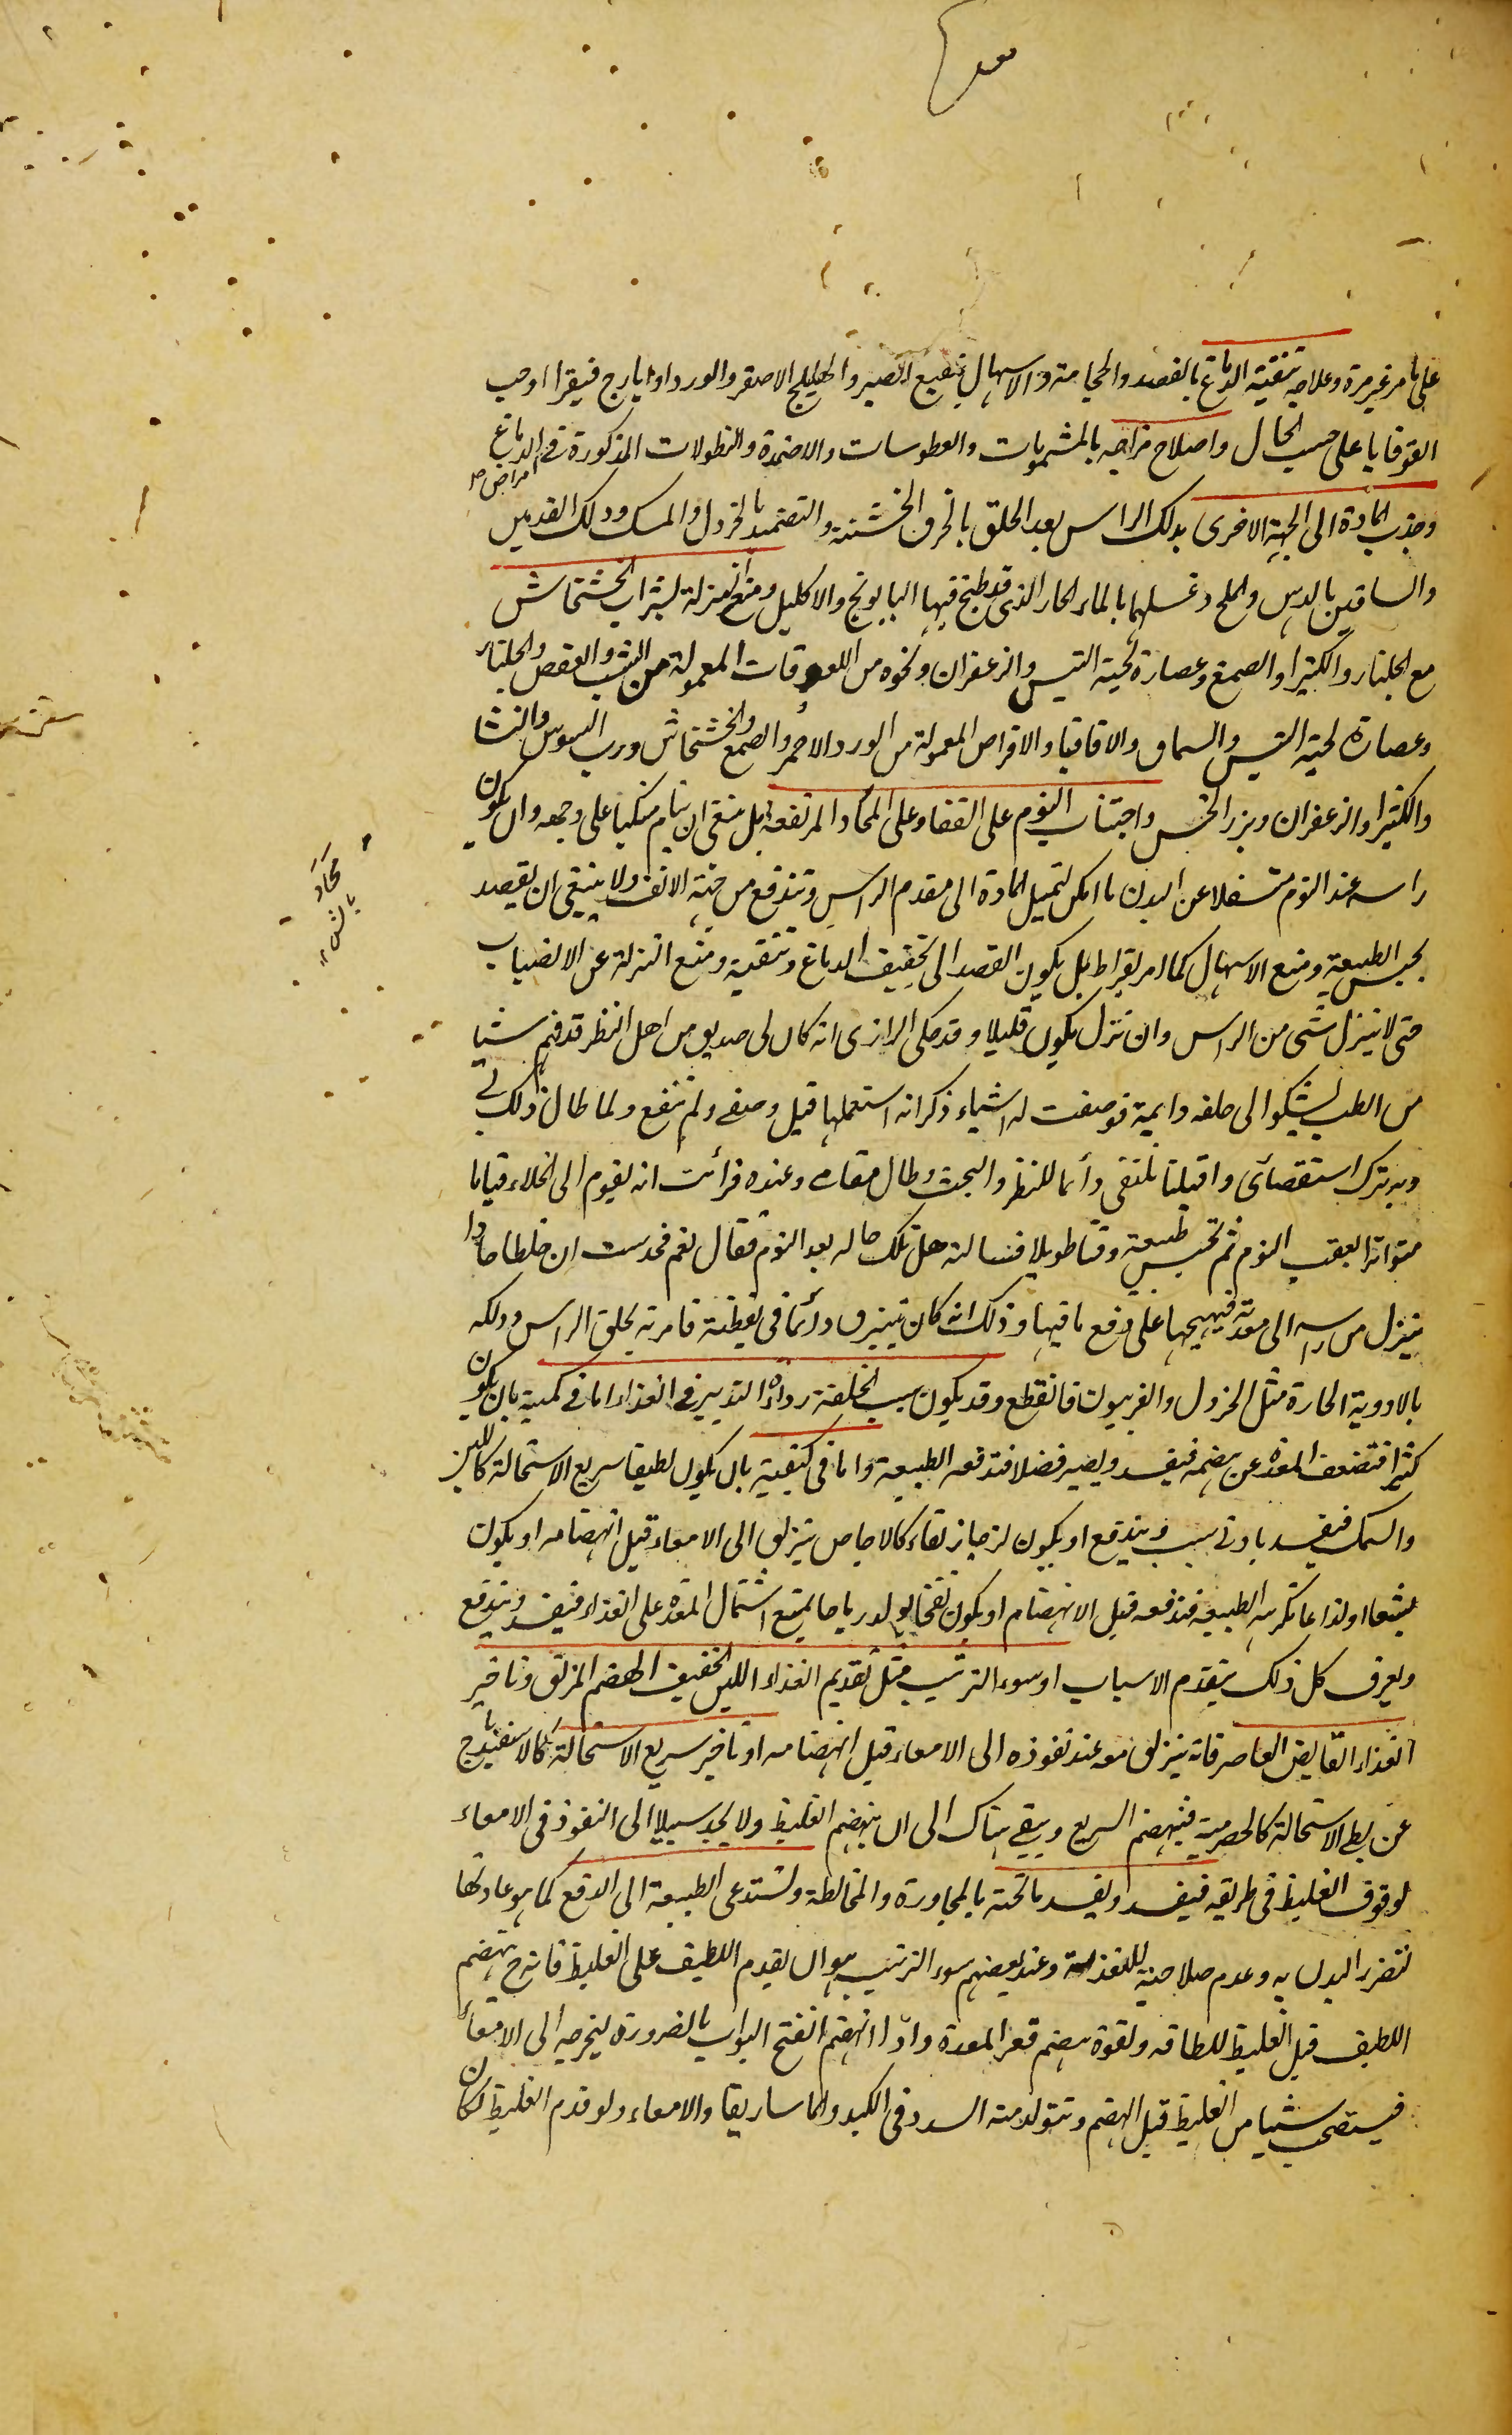 على ما مر غير مرة وعلاجه تنقية الدماغ بالفصد والحجامة والاسهال بنقيع الصبر والهليلج الاصفر والورد او ايارج فيقرا او حب
القوقايا على حسب الحال واصلاح مزاجه بالمشمومات والعطوسات والاضمدة والنطولات المذكورة فى امراض الدماغ
وجذب المادة الى الجهة الاخرى بدلك الراس بعد الحلق بالخرق الخشنة والتضميد بالخردل والمسك ودلك القدمين
والساقين بالدهن والملح وغسلهما بالماء الحار الذى قد طبخ فيها البابونج والاكليل ومنع النزلة بشراب الخشخاش
مع الجلنار والكثيرا والصمغ وعصارة لحية التيس والزعفران ونحوه من اللعوقات المعمولة من الشب والعفص والجلنار
وعصارة لحية التيس والسماق والاقاقيا والاقراص المعمولة من الورد الاحمر والصمغ والخشخاش ورب السوس والنشا
والكثيرا والزعفران وبزر الخس واجتناب النوم على القفا وعلى المخاد المرتفعة بل ينبغى ان ينام منكبا على وجهه وان يكون
راسه عند النوم متسفلا عن البدن ما امكن لتميل المادة الى مقدم الراس وتندفع من جهة الانف ولا ينبغى ان يقصد
بحبس الطبيعة ومنع الاسهال كما امر بقراط بل يكون القصد الى تجفيف الدماغ وتنقيته ومنع النزلة عن الانصباب
حتى لا ينزل شئ من الراس وان نزل يكون قليلا وقد حكى الرازى انه كان لى صديق من اهل النظر قد فهم شيا
من الطب يشتكوا الى خلفه دايمة فوصفت له اشياء ذكر انه استعملها قبل وصفى ولم تنفع ولما طال ذلك بى
وبه ترك استقصائى واقبلنا نلتقى دائما للنظر والبحث وطال مقامى وعنده فرأيت انه يقوم الى الخلاء قياما
متواترا بعقب النوم ثم تحبس طبيعته وقتا طويلا فسالته هل تلك حاله بعد النوم فقال نعم فحدست ان خلطا حادا
ينزل من راسه الى معدته فيهيجها على دفع ما فيها وذلك انه كان يتبزق دائما فى يقظته فامرته بحلق الراس ودلكه
بالادوية الحارة مثل الخردل والفربيون فانقطع وقد يكون سبب الخلفة رداءة التدبير فى الغذاء اما فى كميته بان يكون
كثيرا فتضعف المعدة عن هضمه فيفسد ويصير فضلا فتدفعه الطبيعة واما فى كيفيته بان يكون لطيفا سريع الاستحالة كاللبن
والسمك فيفسد بادنى سبب ويندفع او يكون لزجا زلقا كالاجاص ينزلق الى الامعاء قبل انهضامه او يكون
بشعا او لذاعا تكرهه الطبيعة فتدفعه قبل الانهضام او يكون نفخا يولد رياحا يمنع اشتمال المعدة على الغذاء فيفسد ويندفع
ويعرف كل ذلك بتقدم الاسباب او سوء الترتيب مثل تقديم الغذاء اللين الخفيف الهضم المزلق وتاخير
الغذاء القابض العاصر فانه ينزلق معه عند نفوذه الى الامعاء قبل انهضامه او تاخير سريع الاستحالة كالاسفيدباج
عن بطئ الاستحالة كالحصرمية فينهضم السريع ويبقى هناك الى ان ينهضم الغليظ ولا يجد سبيلا الى النفوذ فى الامعاء
لوقوف الغليظ فى طريقه فيفسد ويفسد ما تحته بالمجاورة والمخالطة وتستدعى الطبيعة الى الدفع كما هو عادتها
لتضرر البدن به وعدم صلاحيته للتغذية وعند بعضهم سوء الترتيب هو ان يقدم اللطيف على الغليظ فانه ح ينهضم
اللطيف قبل الغليظ للطافته ولقوة هضم قعر المعدة واذا انهضم انفتح البواب بالضرورة ليخرجه الى الامعاء
فيستصحب شيا من الغليظ قبل الهضم وتتولد منه السدد فى الكبد والماساريقا والامعاء ولو قدم الغليظ لكان
مخاد
بالش ١٢